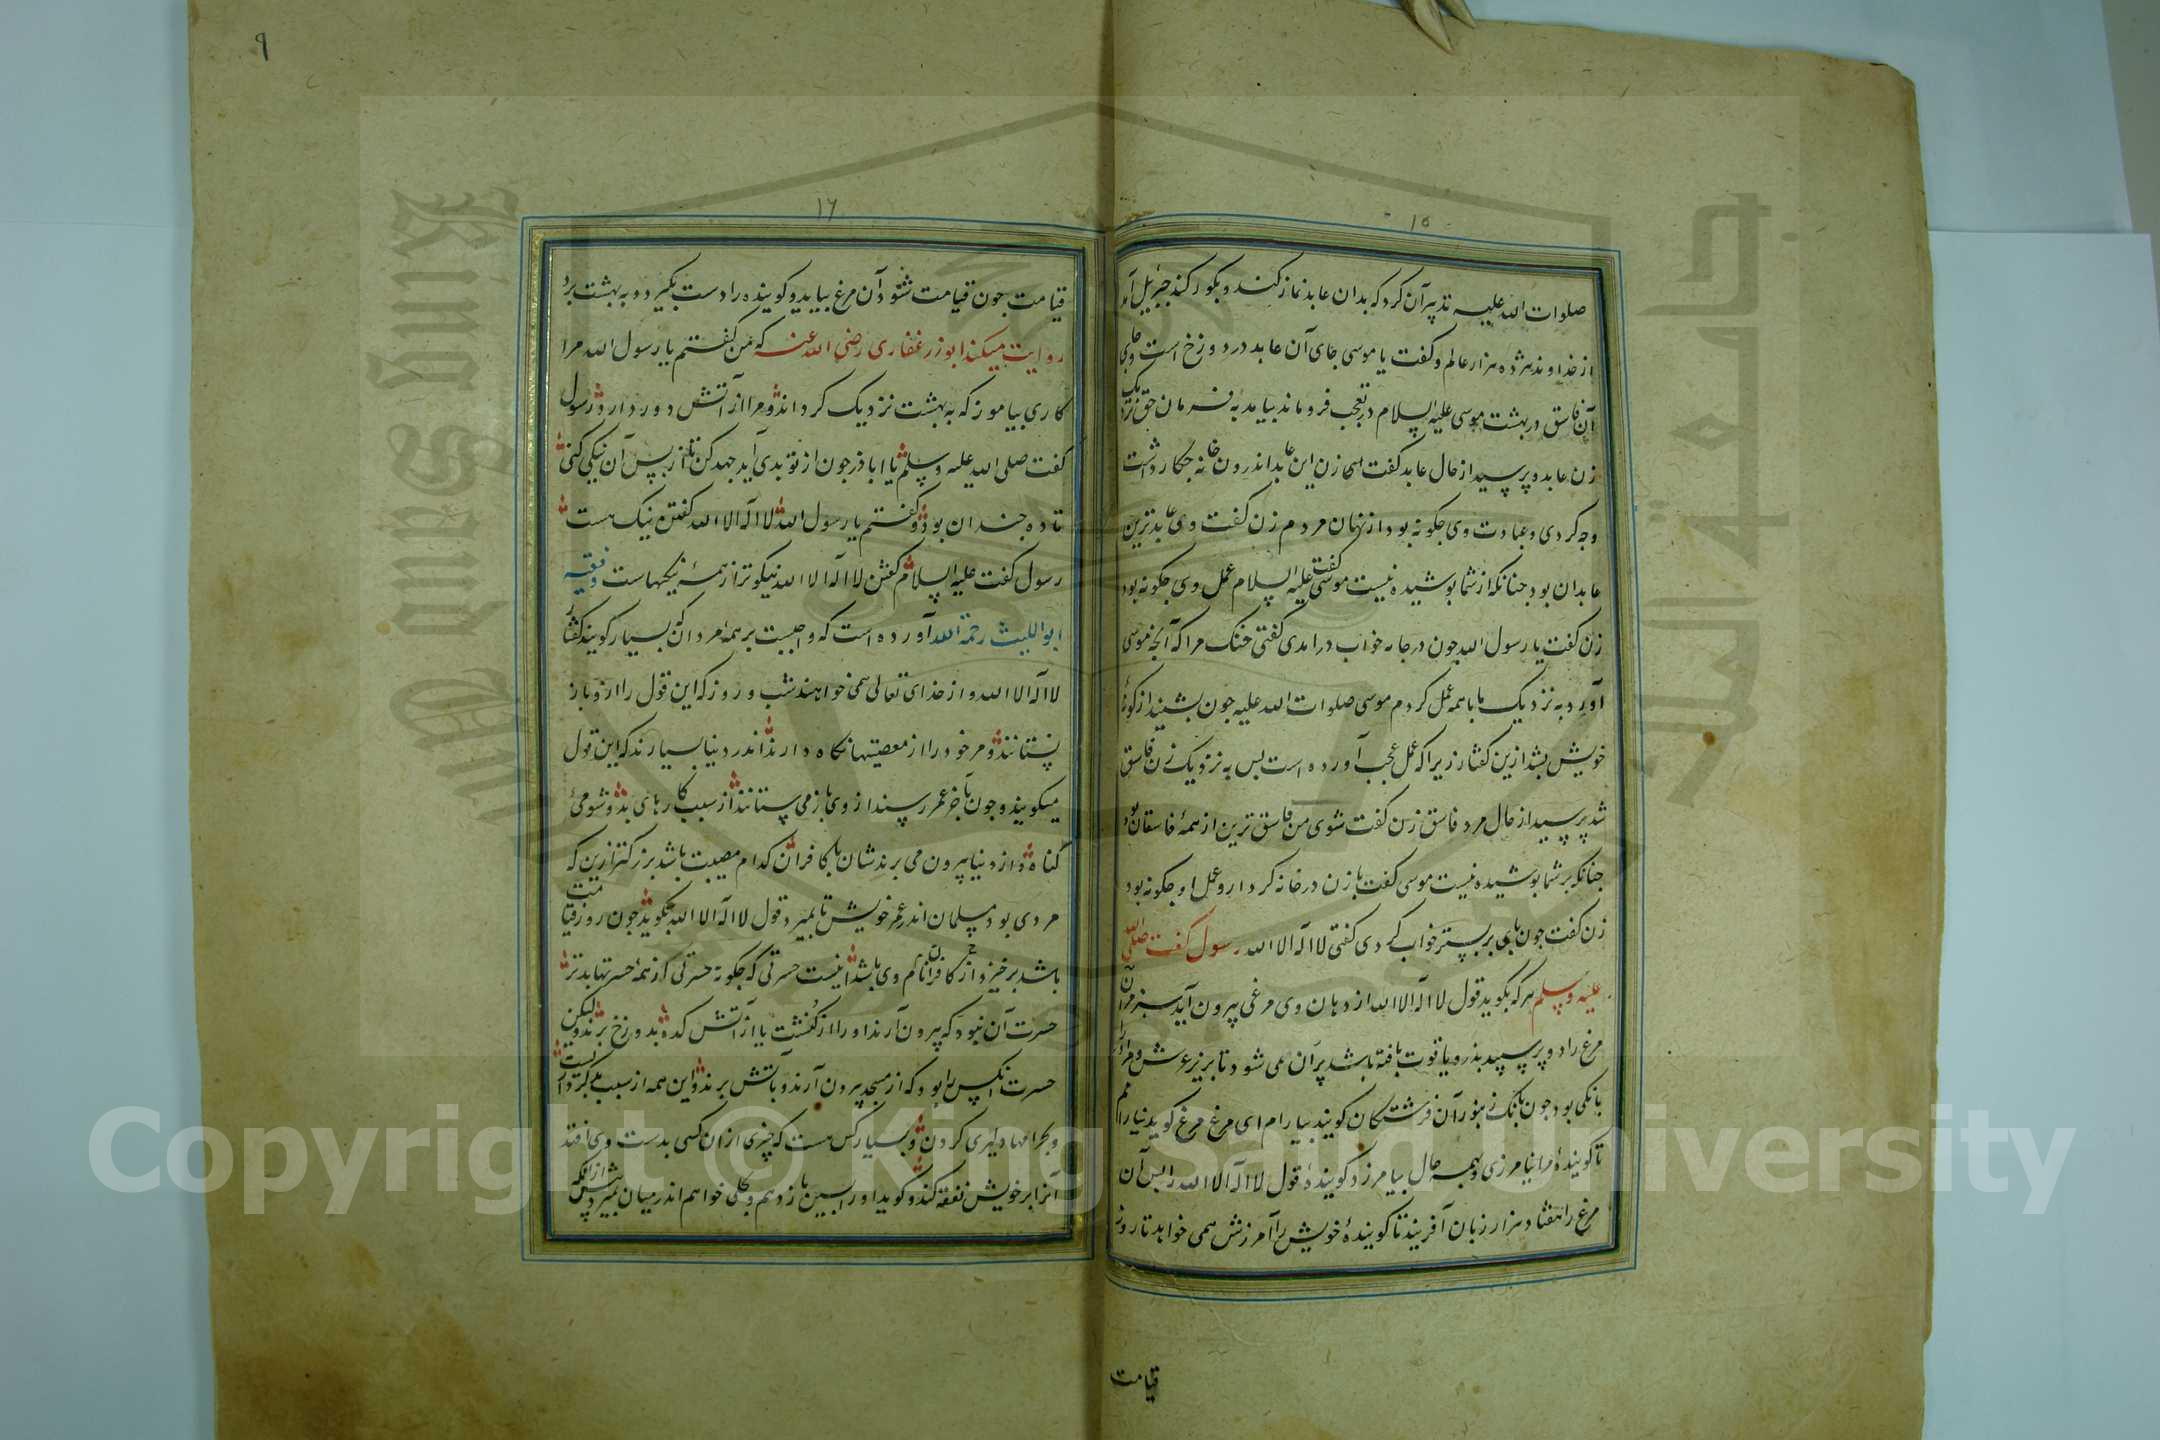 ١٥
صلوات الله علیه تدبیر آن کرد که بدان عابد نماز کند و بگور کند جبریل آمد
از خداوند هژده هزار عالم و گفت یا موسی جای آن عابد در دوزخ است و جای
آن فاسق در بهشت موسی علیه السلام در تعجب فروماند بیامد به فرمان حق نزدیک
زن عابد و پرسید از حال عابد گفت ای زن این عابد اندرون خانه جه کار داشت
وجه کردی و عبادت وی جکونه بود از نهان مردم زن کفت وی عابدترین
عابدان بود جنانکه از شما پوشیده نیست موسی کفت علیه السلام عمل وی جکونه بود
زن کفت یا رسول الله جون در جامه خواب درامدی کفتی خنک مرا که آنجه موسی
آورد به نزدیک ما با همه عمل کردم موسی صلوات الله علیه جون بشنید از کونه
خویش بشد ازین کفتار زیرا که عمل عجب آورده است بس به نزدیک زن فاسق
شد پرسید از حال مرد فاسق زن کفت شوی من فاسق ترین از همهٔ فاسقان بود
جنانکه بر شما پوشیده نیست موسی کفت با زن در خانه کردار و عمل او جکونه بود
زن کفت جون بای بر بستر خواب کردی کفتی لا اله الا الله رسول کفت صلی الله
علیه وسلم هر که بکوید قول لا اله الا الله از دهان وی مرغی بیرون آید سبز مر آن
مرغ را دو پر سپید بدر و یاقوت بافته باشد پران می شود تا بر زیر عرش و مر او را
بانکی بود جون بانک زنبور آن فرشتکان کویند بیارام ای مرغ مرغ کوید نیارامم
تا کویندهٔ مرا نیامرزی و بهمه حال بیامرزد کویندهٔ قول لا اله الا الله را بس آن
مرغ را هفتاد هزار زبان آفریند تا کویندهٔ خویش را آمرزش همی خواهد تا روز
قیامت
٩
١٦
قیامت جون قیامت شود آن مرغ بیاید و کوینده را دست بکیرد و به بهشت برد
روایت میکند ابوذر غفاری رضی الله عنه که من کفتم یا رسول الله مرا
کاری بیاموز که به بهشت نزدیک کرداند و مرا از آتش دور دارد رسول
کفت صلی الله علیه وسلم یا اباذر جون از تو بدی آید جهد کن تا از پس آن نیکی کنی
تا ده جندان بود و کفتم یا رسول الله لا اله الا الله کفتن نیک هست
رسول کفت علیه السلام کفتن لا اله الا الله نیکوتر از همهٔ نیکیهاست وفقیه
ابو اللیث رحمة الله آورده است که واجبست بر همهٔ مردان که بسیار کویند کفتار
لا اله الا الله و از خدای تعالی همی خواهند شب و روز که این قول را از و باز
نستانند و مر خود را از معصیتها نکاه دارند اندر دنیا بسیارند که این قول
میکویند و جون بآخر عمر رسند از وی باز می ستانند از سبب کارهای بد و شومی
کناه و از دنیا بیرون می برندشان با کافران کدام مصیبت باشد بزرکتر ازین که
مردی بود مسلمان اندر عمر خویش تا بمیرد قول لا اله الا الله بکوید جون روز قیامت
باشد برخیزد از کافران نام وی باشد اینست حسرتی که جکونه حسرتی از همهٔ حسرتها بدتر
حسرت آن نبود که بیرون آرند او را از کنشت یا از آتش کده بدوزخ برند ولیکن
حسرت آنکس را بود که از مسجد بیرون آرند و بآتش برند و این همه از سبب بد کردارست
و بحرامها دلیری کردن و بسیار کس هست که چیزی از آن کسی بدست وی افتد
آنرا بر خویش نفقه کند و کوید او را سپس باز دهم و بحلی خواهم اندر میان بمیرد پیش از آنکه